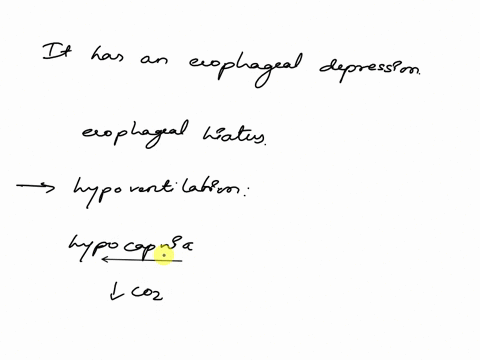 It has an esophageal depression.
esophageal hiatus.
→ hypoventilation:
hypocapnia
↓ CO2